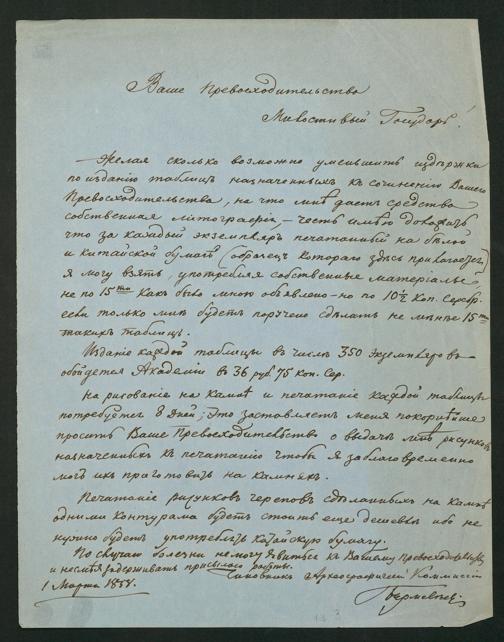 Ваше Превосходительство
Милостивый Государь!
Желая сколько возможно уменьшить издержки
по изданію таблицъ назначенныхъ къ сочиненію Вашего
Превосходительства, на что мнѣ даетъ средства
собственная литографія, – честь имѣю доложить
что за каждый экземпляръ печатанный на бѣлой
и китайской бумагѣ (образецъ котораго здѣсь прилагается)
я могу взять, употребляя собственные матеріалы
не по 15ти какъ было мною объявлено – но по 10½ коп. серебр.
если только мнѣ будетъ поручено сдѣлать не менѣе 15ти
такихъ таблицъ.
Изданіе каждой таблицы въ числѣ 350 экземпляровъ
обойдется Академіи въ 36 руб. 75 коп. сер.
На рисованіе на камнѣ и печатаніе каждой таблицы
потребуется 8 дней; это заставляетъ меня покорнѣйше
просить Ваше Превосходительство о выдачѣ мнѣ рисунковъ
назначенныхъ къ печатанію чтобы я заблаговременно
могъ ихъ приготовить на камняхъ.
Печатаніе рисунковъ череповъ сдѣланныхъ на камнѣ
одними контурами будетъ стоить еще дешевле ибо не
нужно будетъ употреблять китайскую бумагу.
По случаю болѣзни не могу явиться къ Вашему Превосходительству
и не смѣя задерживать присылаю работы.
Чиновникъ Археографической Коммиссіи
1 Марта 1857.